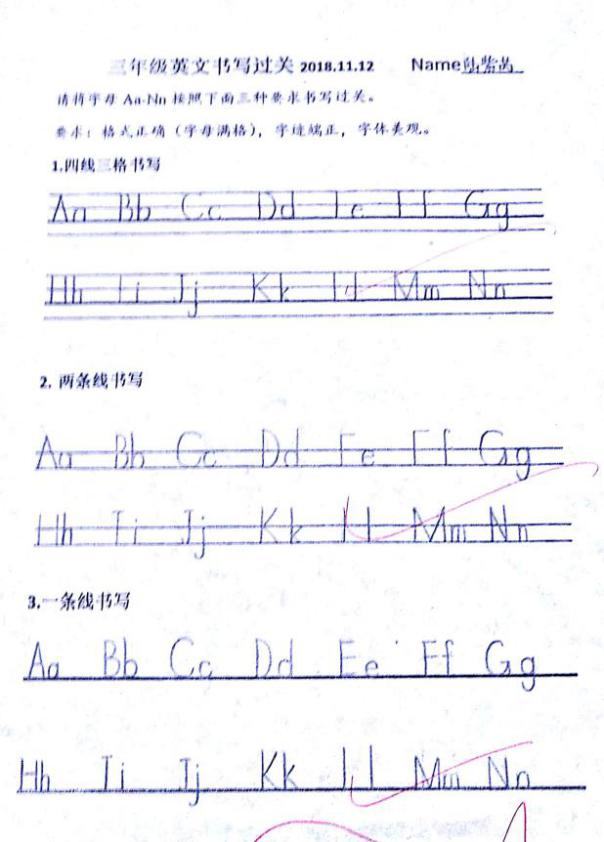 三年级英文书写过关 2018.11.12 Name
请将字母 Aa-Nn 按照下面三种要求书写过关。
要求：格式正确（字母满格），字迹端正，字体美观。
1.四线三格书写
Aa Bb Cc Dd Ee Ff Gg
Hh Ii Jj Kk Ll Mm Nn
2. 两条线书写
Aa Bb Cc Dd Ee Ff Gg
Hh Ii Jj Kk Ll Mm Nn
3.一条线书写
Aa Bb Cc Dd Ee Ff Gg
Hh Ii Jj Kk Ll Mm Nn